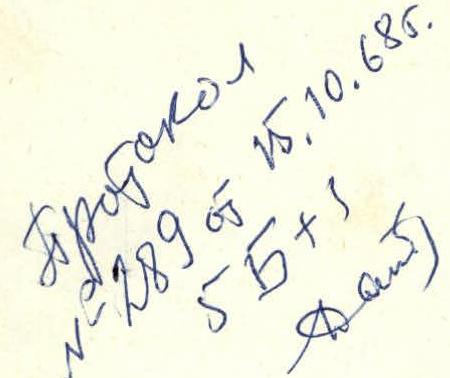 Протокол
№ 289 от 15.10.68г.
5Б+1